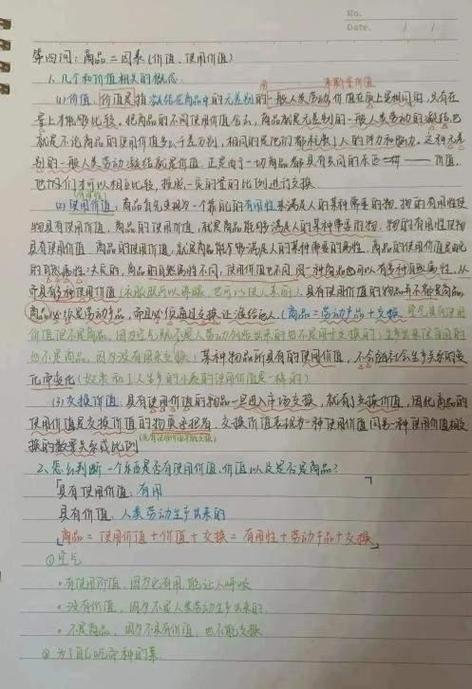 No.
Date. / /
第四问：商品二因素（价值、使用价值）
1、几个和价值相关的概念
(1) 价值：价值是指凝结在商品中的无差别的一般人类劳动，价值在质上是相同的，只有在
量上才能够比较，把商品的不同使用价值舍去，商品就是无差别的一般人类劳动的凝结也
就是不论商品的使用价值多么千差万别，相同的是他们都耗费了人的体力和脑力，这种无差
别的一般人类劳动凝结就是价值，正是由于一切商品都具有共同的东西 —— 价值，
也才可以相互比较，按照一定的量的比例进行交换
(2) 使用价值：商品首先表现为一个靠自己的有用性来满足人的某种需要的物，物的有用性使
物具有使用价值，商品的使用价值，就是商品能够满足人的某种需要的物，物的有用性使物
具有使用价值，商品的使用价值，就是商品能够满足人的某种需要的属性，商品的使用价值是由它
的自然属性决定的，商品的自然属性不同，使用价值也不同，同一种商品也可以有多种自然属性，从
而具有多种使用价值 具有使用价值的物品并不都是商品，
商品必须是劳动产品，而且必须通过交换让渡给他人，（商品=劳动产品+交换，空气具有使用
价值但不是商品，因为空气既不是人类劳动创造出来的也不是用于交换的；生产出来自用的
也不是商品，因为没有用来交换）某种物品所具有的使用价值，不会随社会生产关系的变
化而变化
(3) 交换价值：具有使用价值的物品一旦进入市场交换，就有了交换价值，因此商品的
使用价值是交换价值的物质承担者，交换价值表现为一种使用价值同另一种使用价值相交
换的数量关系或比例
2、怎么判断一个东西是否有使用价值、价值以及是不是商品？
具有使用价值：有用
具有价值：人类劳动生产出来的
商品 = 使用价值+价值+交换 = 有用性+劳动产品+交换
① 空气
• 有使用价值，因为它有用，能让人呼吸
• 没有价值，因为不是人类劳动生产出来的
• 不是商品，因为不具有价值，也不能交换
② 为了自己吃而种的菜